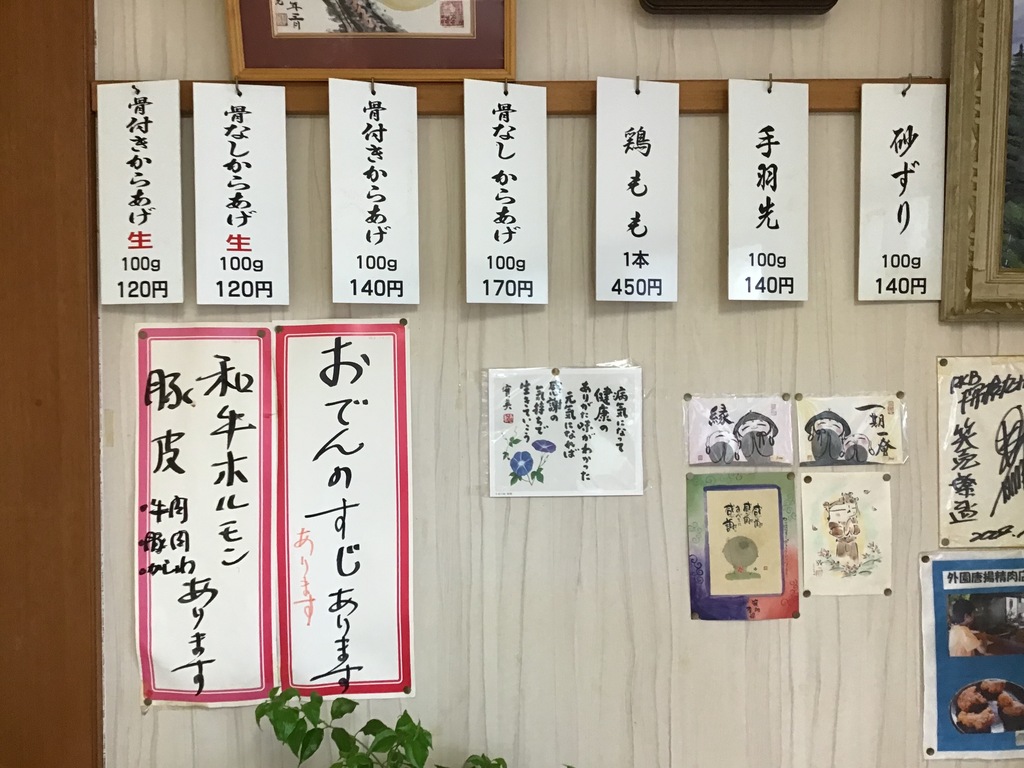 年二月
骨付きからあげ
生
100g
120円
骨なしからあげ
生
100g
120円
骨付きからあげ
100g
140円
骨なしからあげ
100g
170円
鶏もも
1本
450円
手羽先
100g
140円
砂ずり
100g
140円
おでんのすじあります
あります
和牛ホルモン
豚皮
・牛肉
・豚肉
・かしわ
あります
病気になって
健康の
ありがた味がわかった
元気になれば
感謝の
気持ちで
生きていこう
縁
一期一会
外園唐揚精肉店